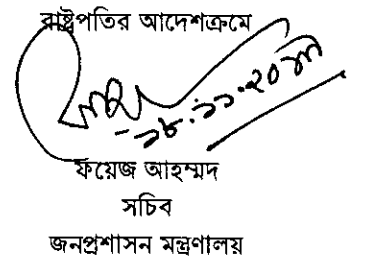 রাষ্ট্রপতির আদেশক্রমে
ফয়েজ আহম্মদ
সচিব
জনপ্রশাসন মন্ত্রণালয়